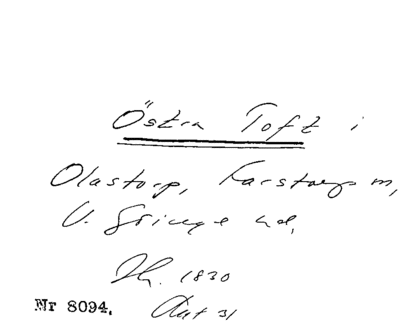 Östra Toft i
Olastorp, Farstorps m,
V. Göinge hd,
Th. 1830
Nr 8094.